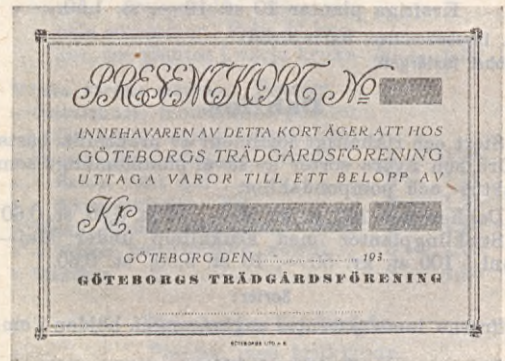 PRESENTKORT No
INNEHAVAREN AV DETTA KORT ÄGER ATT HOS
GÖTEBORGS TRÄDGÅRDSFÖRENING
UTTAGA VAROR TILL ETT BELOPP AV
Kr.
GÖTEBORG DEN 193
GÖTEBORGS TRÄDGÅRDSFÖRENING
GÖTEBORGS LITO A B